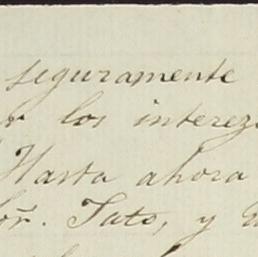 seguramente
r los interez
Hasta ahora
or. Tato, y